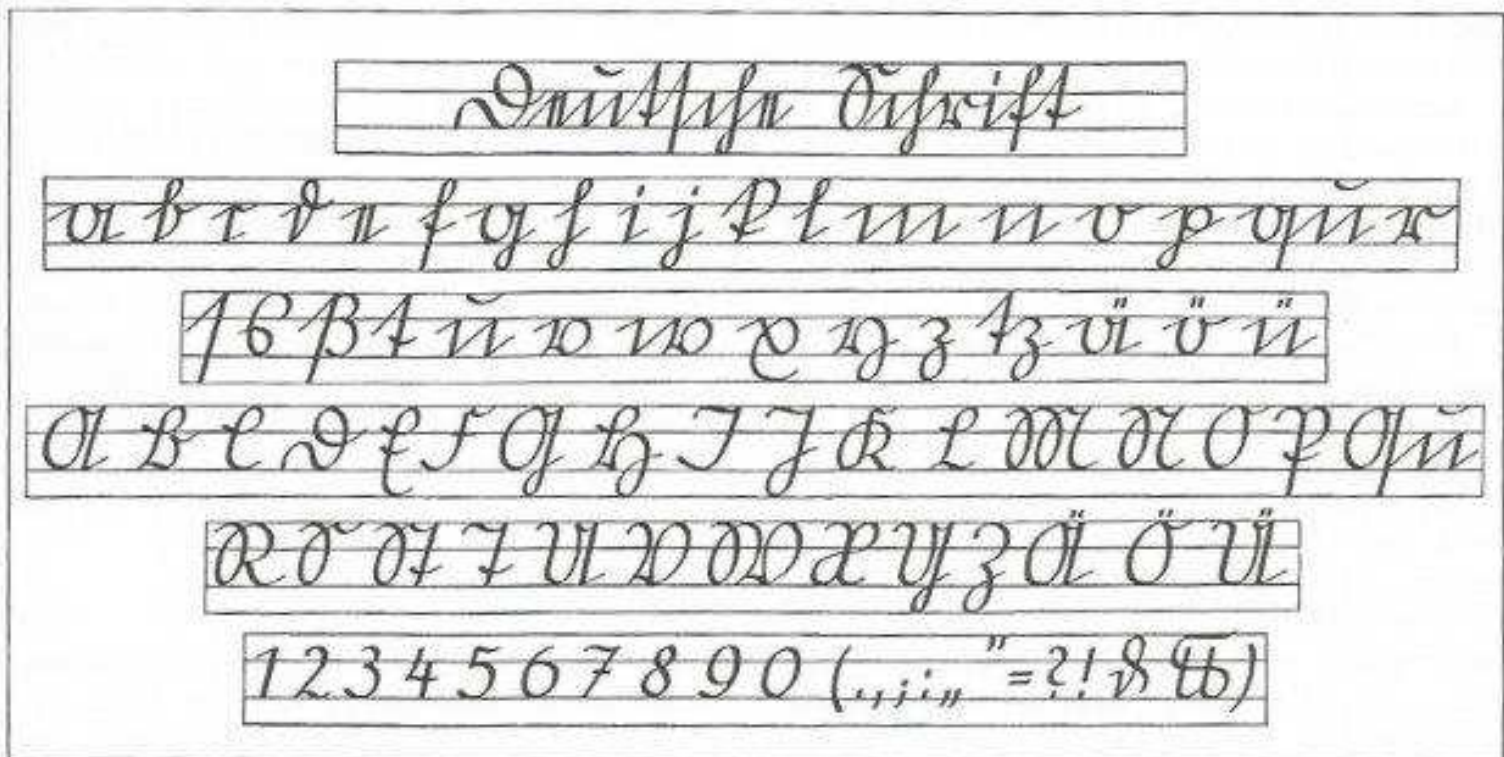 Deutsche Schrift
a b c d e f g h i j k l m n o p qu r
ſ s ß t u v w x y z tz ä ö ü
A B C D E F G H I J K L M N O P Qu
R S St T U V W X Y Z Ä Ö Ü
1 2 3 4 5 6 7 8 9 0 (.,;:„ "=?! )